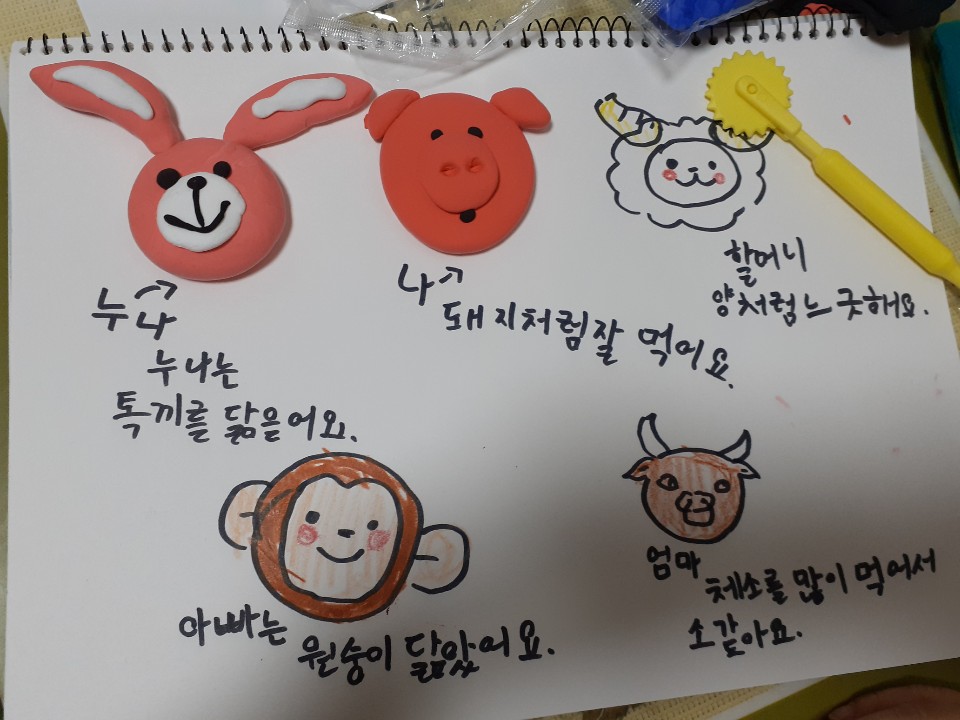 누나
누나는
톡끼를 닮을어요.
나
돼지처럼잘 먹어요.
할머니
양처럼느긋해요.
아빠는
원숭이 닮았어요.
엄마
체소를 많이 먹어서
소같아요.